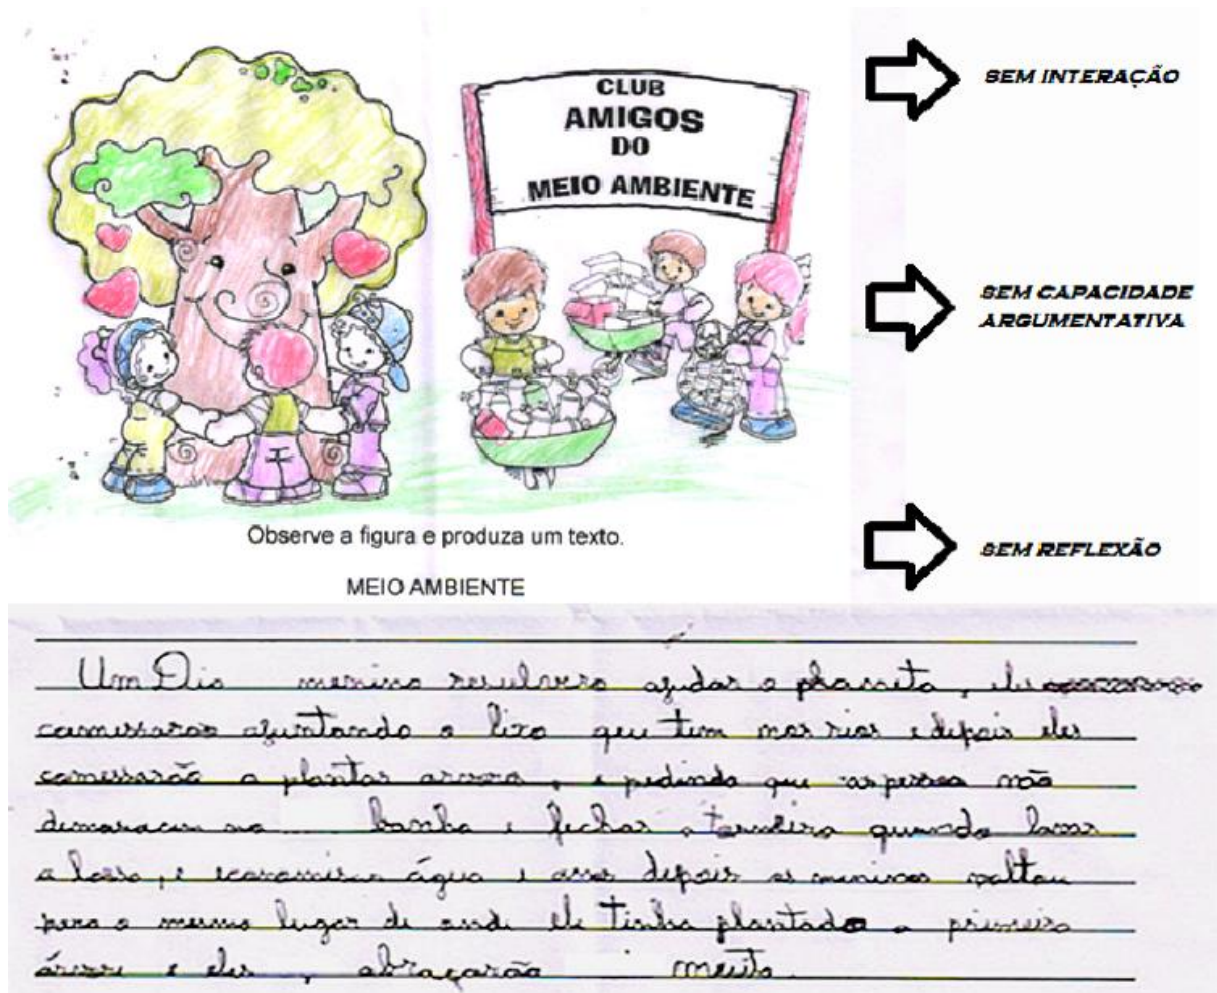 CLUB
AMIGOS
DO
MEIO AMBIENTE
SEM INTERAÇÃO
SEM CAPACIDADE
ARGUMENTATIVA
SEM REFLEXÃO
Observe a figura e produza um texto.
MEIO AMBIENTE
Um Dia menino resulvero ajudar o planeta, eles
comessarao ajuntando o lixo que tem nos rios e depois eles
comessarão a plantar arvores, e pedindo que as pessoa não
no banho e fechar a torneira quando lavar
a loso, e economisar água e anos depois os meninos voltou
pera o mesmo lugar de onde ele tinha plantado a primeira
árvore e eles, abraçarão muito.